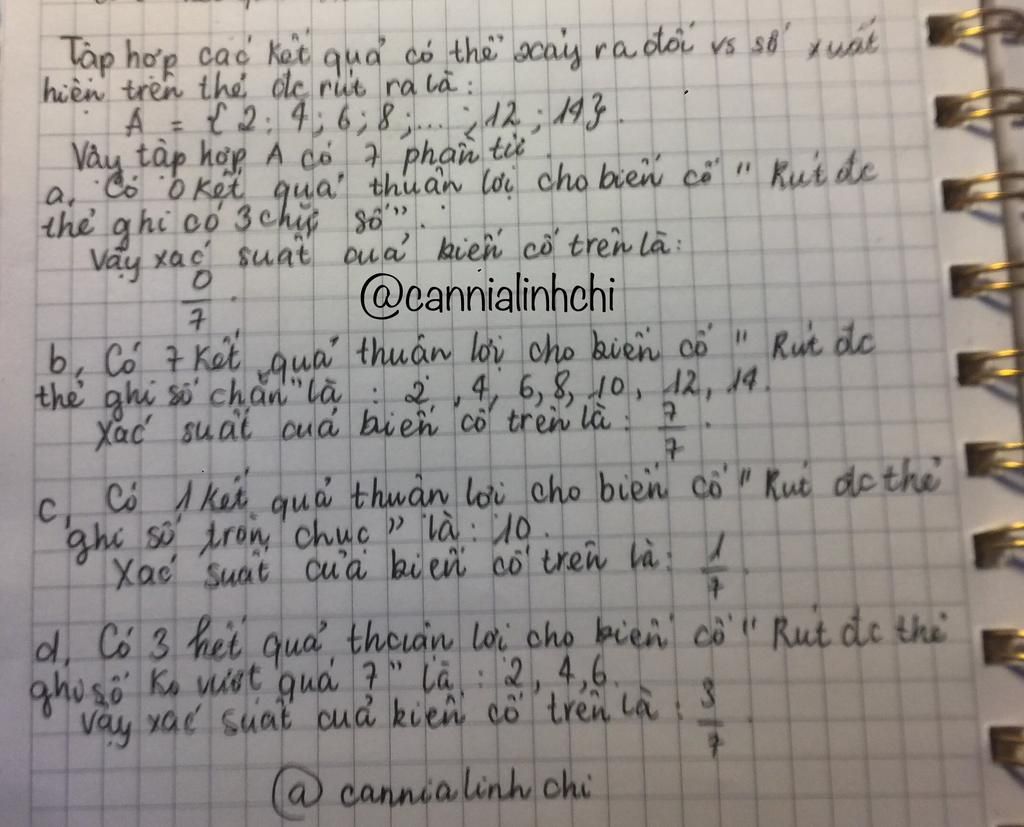 Tập hợp các kết quả có thể xảy ra đối vs số xuất
hiện trên thẻ đc rút ra là:
A = {2; 4; 6; 8; ...; 12; 14}.
Vậy tập hợp A có 7 phần tử.
a, Có 0 kết quả thuận lợi cho biến cố "Rút đc
thẻ ghi có 3 chữ số".
Vậy xác suất của biến cố trên là:
0/7.
@cannialinhchi
b, Có 7 kết quả thuận lợi cho biến cố "Rút đc
thẻ ghi số chẵn" là: 2, 4, 6, 8, 10, 12, 14.
Xác suất của biến cố trên là: 7/7.
c, Có 1 kết quả thuận lợi cho biến cố "Rút đc thẻ
ghi số tròn chục" là: 10.
Xác suất của biến cố trên là: 1/7.
d, Có 3 kết quả thuận lợi cho biến cố "Rút đc thẻ
ghi số ko vượt quá 7" là: 2, 4, 6.
Vậy xác suất của biến cố trên là: 3/7.
@cannialinhchi